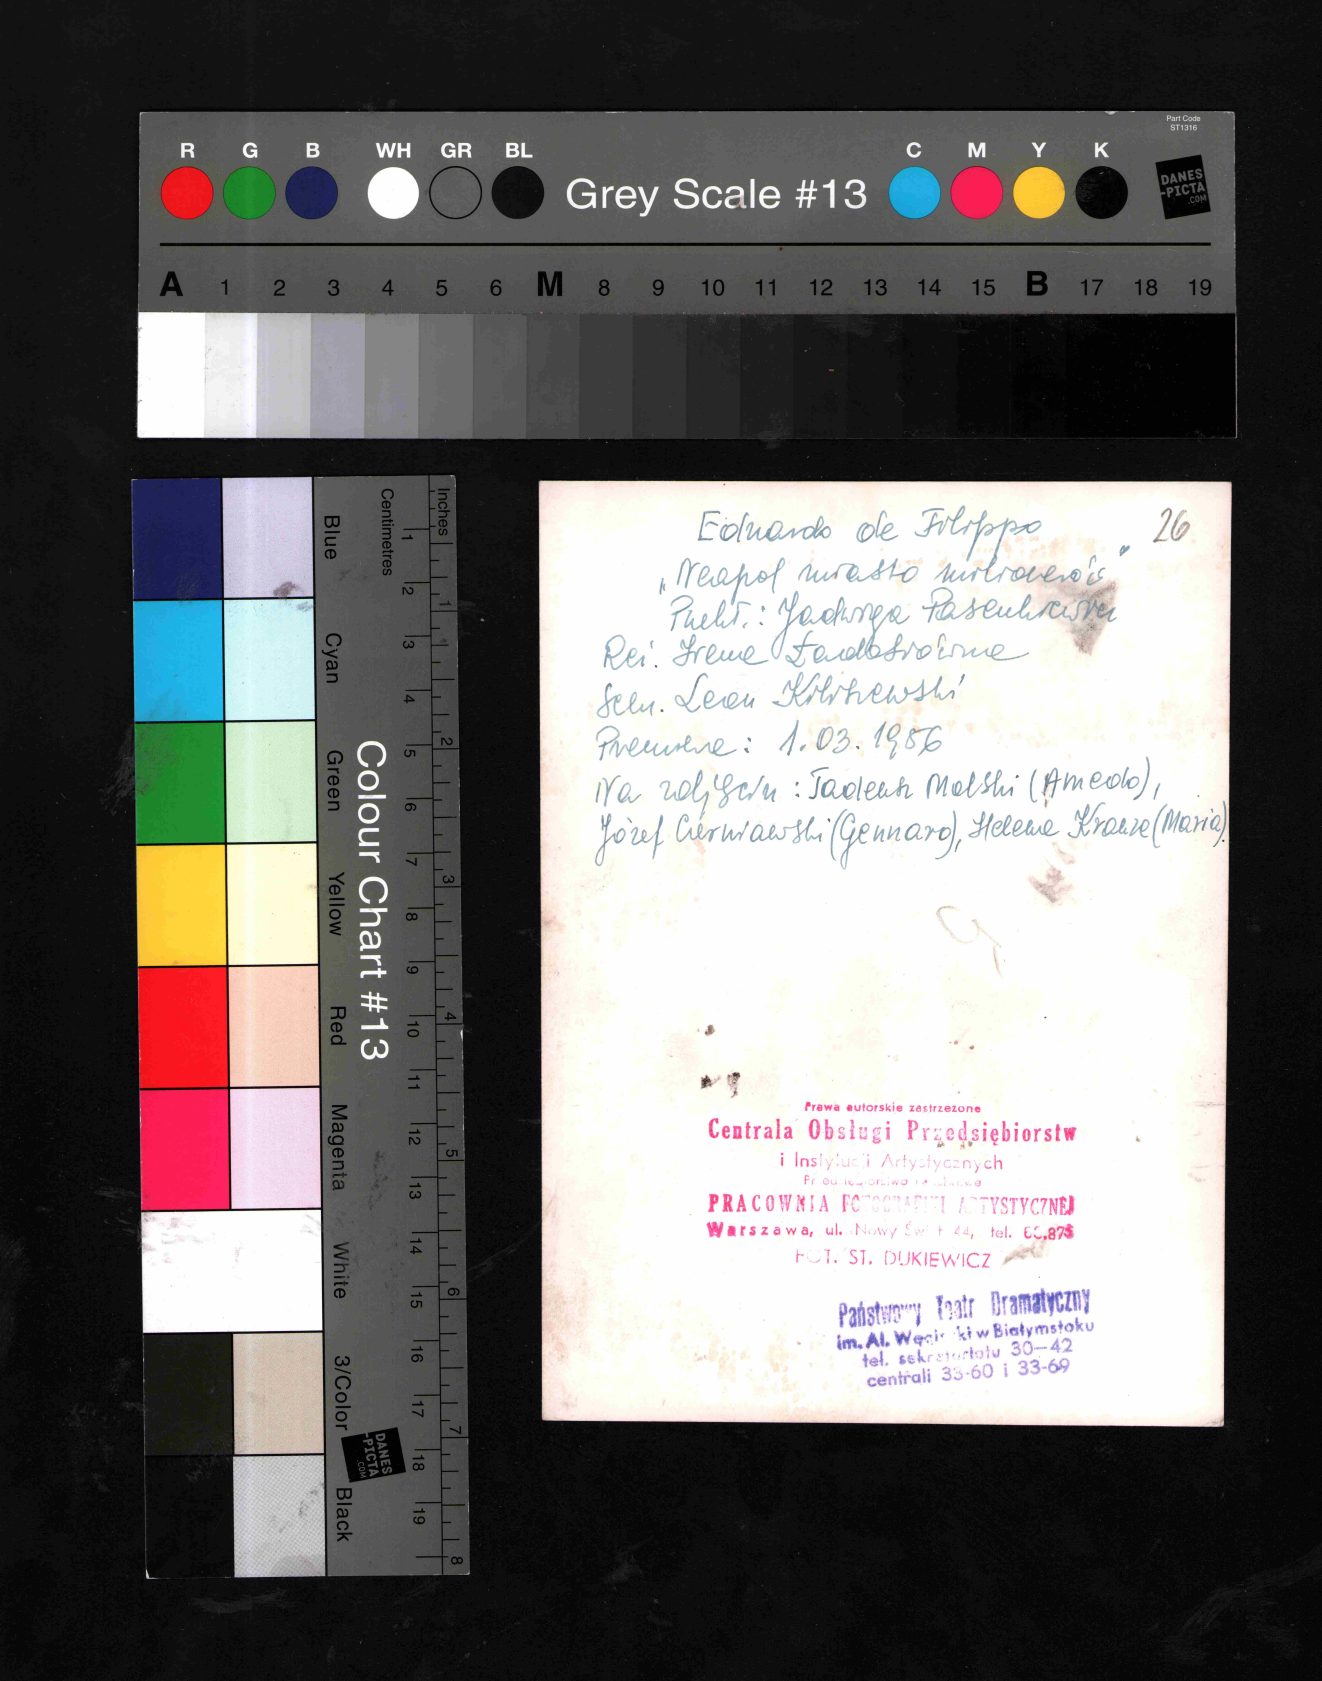 Part Code
ST1316
R G B WH GR BL
Grey Scale #13
C M Y K
DANES
-PICTA
.COM
A 1 2 3 4 5 6 M 8 9 10 11 12 13 14 15 B 17 18 19
Colour Chart #13
Blue Cyan Green Yellow Red Magenta White 3/Color Black
Centimetres 1 2 3 4 5 6 7 8 9 10 11 12 13 14 15 16 17 18 19
Inches 1 2 3 4 5 6 7 8
DANES
-PICTA
.COM
26
Eduardo de Filippo
„Neapol miasto milionerów”
Jadwiga Pasenkiewicz
Reż. Irena
Scen. Leon
Premiera: 1.03.1956
Na zdjęciu: Tadeusz Molski (Amedo),
Józef Czerniawski (Gennaro), Helena Krauze (Maria).
Prawa autorskie zastrzeżone
Centrala Obsługi Przedsiębiorstw
i Instytucji Artystycznych
PRACOWNIA FOTOGRAFIKI ARTYSTYCZNEJ
Warszawa, ul. Nowy Świat 44, tel.
FOT. ST. DUKIEWICZ
Państwowy Teatr Dramatyczny
im. Al. Węgierki w Białymstoku
tel. sekretariatu 30-42
centrali 33-60 i 33-69